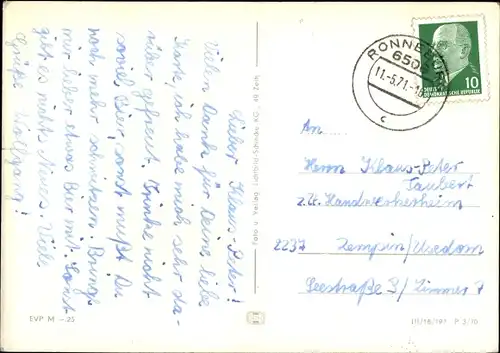 Lieber Klaus-Peter!
Vielen Dank für Deine liebe
Karte, ich habe mich sehr da-
rüber gefreut. Trinke nicht
soviel Bier, sonst mußt Du
noch mehr schwitzen. Bringe
mir lieber etwas Bier mit. Sonst
gibt es nichts Neues. Viele
Grüße Wolfgang!
EVP M -,25
Foto u. Verlag
KG, 49 Zeitz
RONNEBURG
6506
11.-5.71.-
c
10
DEUTSCHE
DEMOKRATISCHE REPUBLIK
An
Herrn Klaus-Peter
Taubert
z.Zt. Handwerkerheim
2237 Zempin/Usedom
Seestraße 9/Zimmer 7
III/18/197 P 3/70